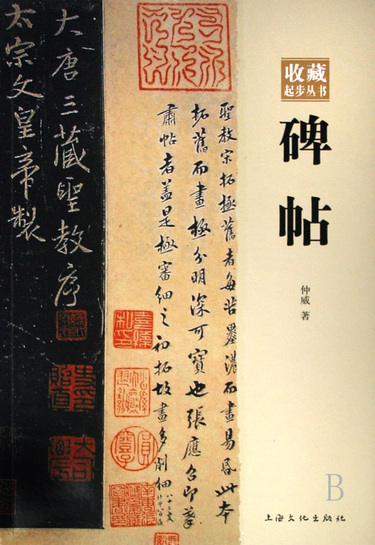 收藏
起步丛书
碑帖
仲威 著
聖教宋拓極舊者每苦墨濃而畫易昏此本
拓舊而畫極分明深可寶也張應召印筆
肅帖者蓋是極審細之初拓故畫多削細
大唐三藏聖教序
太宗文皇帝製
B
上海文化出版社